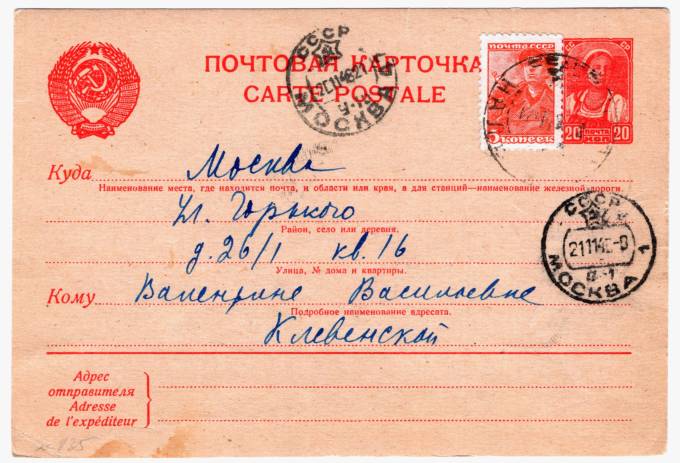 ПОЧТОВАЯ КАРТОЧКА
CARTE POSTALE
ПОЧТА СССР
5 КОПЕЕК
20 ПОЧТА КОП 20
СССР
МОСКВА
СССР
21 11
МОСКВА 1
Куда Москва
Наименование места, где находится почта, и области или края, а для станций—наименование железной дороги.
ул. Горького
Район, село или деревня.
д. 26/1 кв. 16
Улица, № дома и квартиры.
Кому Валентине Васильевне
Подробное наименование адресата.
Клевенской
Адрес
отправителя
Adresse
de l'expéditeur